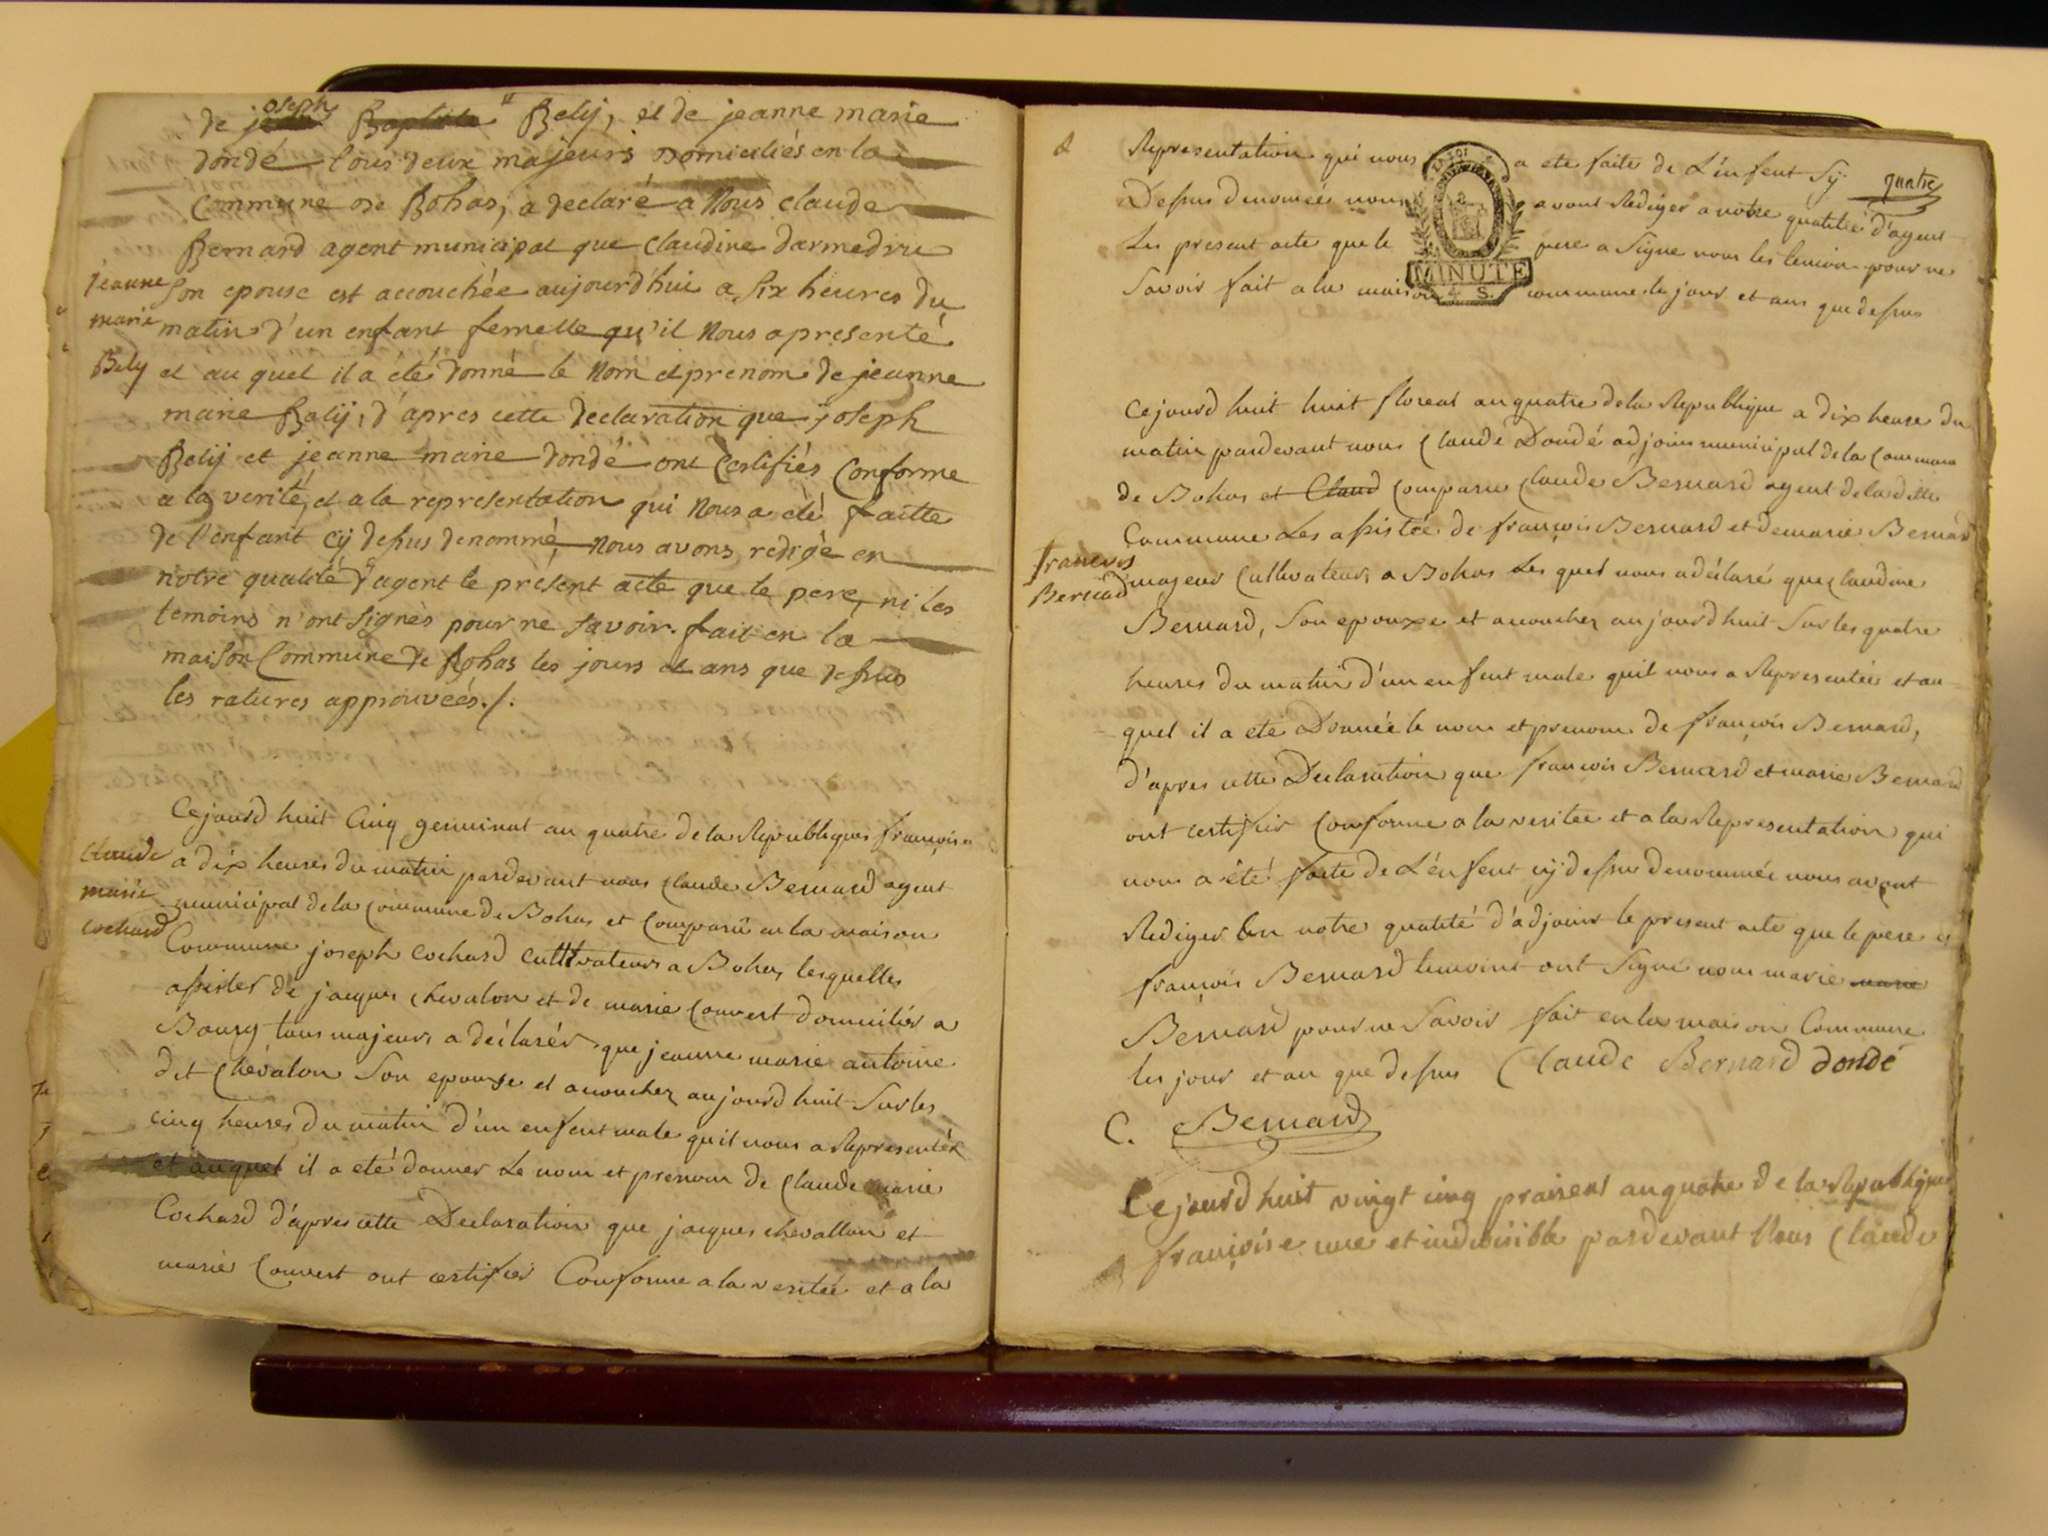 de joseph Baptiste Belij, et de jeanne marie
dondé tous deux majeurs Domiciliés en la
Commune de Bohas, a declaré a Nous claude
Bernard agent municipal que claudine darmedru
jeanne
Son epouse est accouchée aujourd'hui a six heures du
marie
matin d'un enfant femelle qu'il Nous a presenté
Bely
et au quel il a été donné le Nom et prenom de jeanne
marie Belij, d'apres cette declaration que joseph
Belij et jeanne marie dondé ont Certifiés Conforme
a la verité, et a la representation qui Nous a été faitte
de l'enfant cÿ dessus denommé, Nous avons redigé en
notre qualité d'agent le présent acte que le pere, ni les
temoins n'ont signés pour ne savoir. fait en la
maison Commune de Bohas les jours et ans que dessus
les ratures approuveés./.
Cejourd huit Cinq germinal an quatre de la Republiques françoise
claude
a dix heures du matin pardevant nous Claude Bernard agent
marie
municipal de la Commune de Bohas et Comparû en la maison
cochard
Commune joseph cochard Cultivateurs a Bohas lesquelles
assister de jacques chevalon et de marie Convert domiciliés a
Bourg tous majeurs a déclarér que jeanne marie antoine
dit Chevalon Son epouse et acouchez aujourd huit Sur les
cinq heures du matin d'un enfent male quil nous a Representér
et auquel il a eté donner Le nom et prenom de Claude marie
Cochard d'apres cette Declaration que jacques chevallon et
marie Convert ont certifier Conforme a la veritée et a la
Representation qui nous a ete faite de L'enfent Sÿ
quatre
Dessus denomée nous avont Rediger a notre qualitée d'agent
Les present acte que le pere a Signe non les temoin pour ne
Savoir fait a la maison commune les jour et ans que dessus
LA LOI
MINUTE
4 S.
Cejourd huit huit floreal an quatre de la Republique a dix heure du
matin pardevant nous Claude Dondé adjoint municipal de la Commune
de Bohas et Claud Comparu Claude Bernard agent de la ditte
Commune Les assistée de françois Bernard et de marie Bernard
francois
majeur Cultivateurs a Bohas Les quel nous a déclaré que Claudine
Bernad
Bernard, Son epouxe et acouchez aujourd huit Sur les quatre
heures du matin d'un enfent male quil nous a Representée et au
quel il a ete Donnée le nom et prenom de françois Bernard,
d'apres cette Declaration que françois Bernard et marie Bernard
ont certifier Conforme a la veritee et a la Representation qui
nous a été faite de L'énfent cÿ dessus denommée nous avont
Rediger En notre qualité d'adjoint le present acte que le pere et
françois Bernard temoins ont Signé non marie marie
Bernard pour ne Savoir fait en la maison Commune
les jour et an que dessus Claude Bernard dondé
C. Bernard
Cejourd huit vingt cinq prairial an quatre de la Republique
françoise une et indivisible pardevant Nous Claude